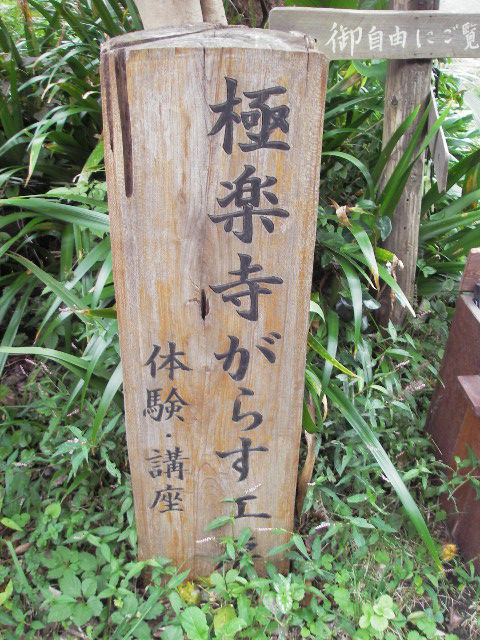 御自由にご覧
極楽寺がらす工
体験・講座